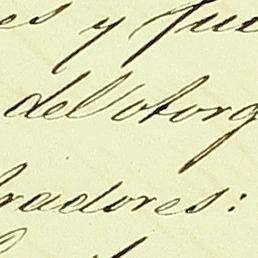 es y fue
del otorg
radores: